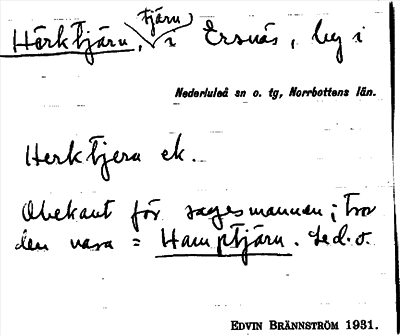 Herktjärn, tjärn i Ersnäs, by i
Nederluleå sn o. tg, Norrbottens län.
Herktjern ek.
Obekant för sagesmannen; tror
den vara = Hamptjärn. Se d. o.
EDVIN BRÄNNSTRÖM 1931.